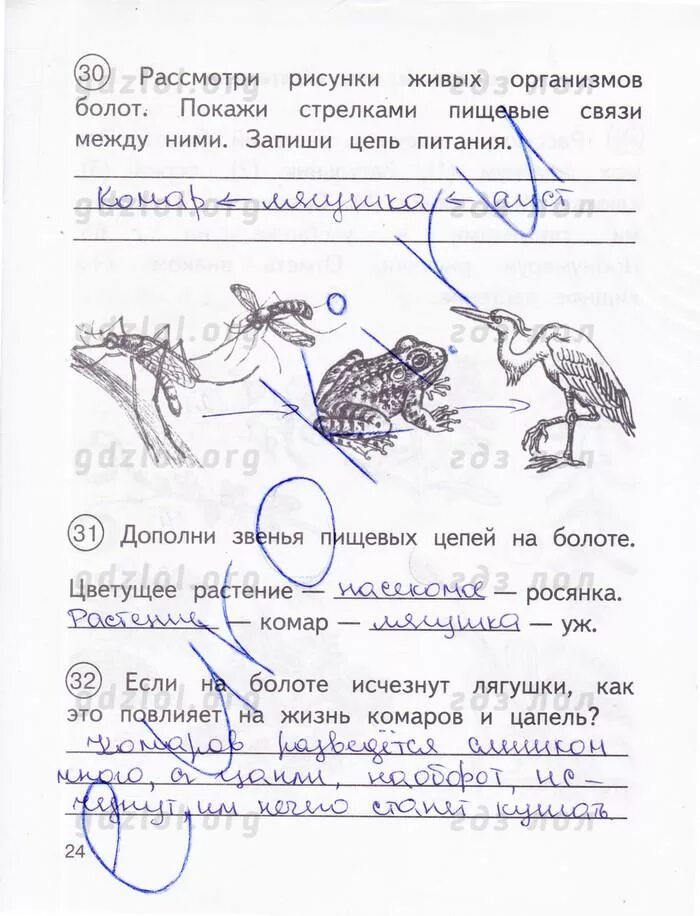 30 Рассмотри рисунки живых организмов
болот. Покажи стрелками пищевые связи
между ними. Запиши цепь питания.
Комар ← лягушка ← аист
gdzlol.org гдз лол
31 Дополни звенья пищевых цепей на болоте.
Цветущее растение — насекомое — росянка.
Растение — комар — лягушка — уж.
32 Если на болоте исчезнут лягушки, как
это повлияет на жизнь комаров и цапель?
Комаров разведётся слишком
много, а цапли, наоборот, ис-
чезнут, им нечего станет кушать
24